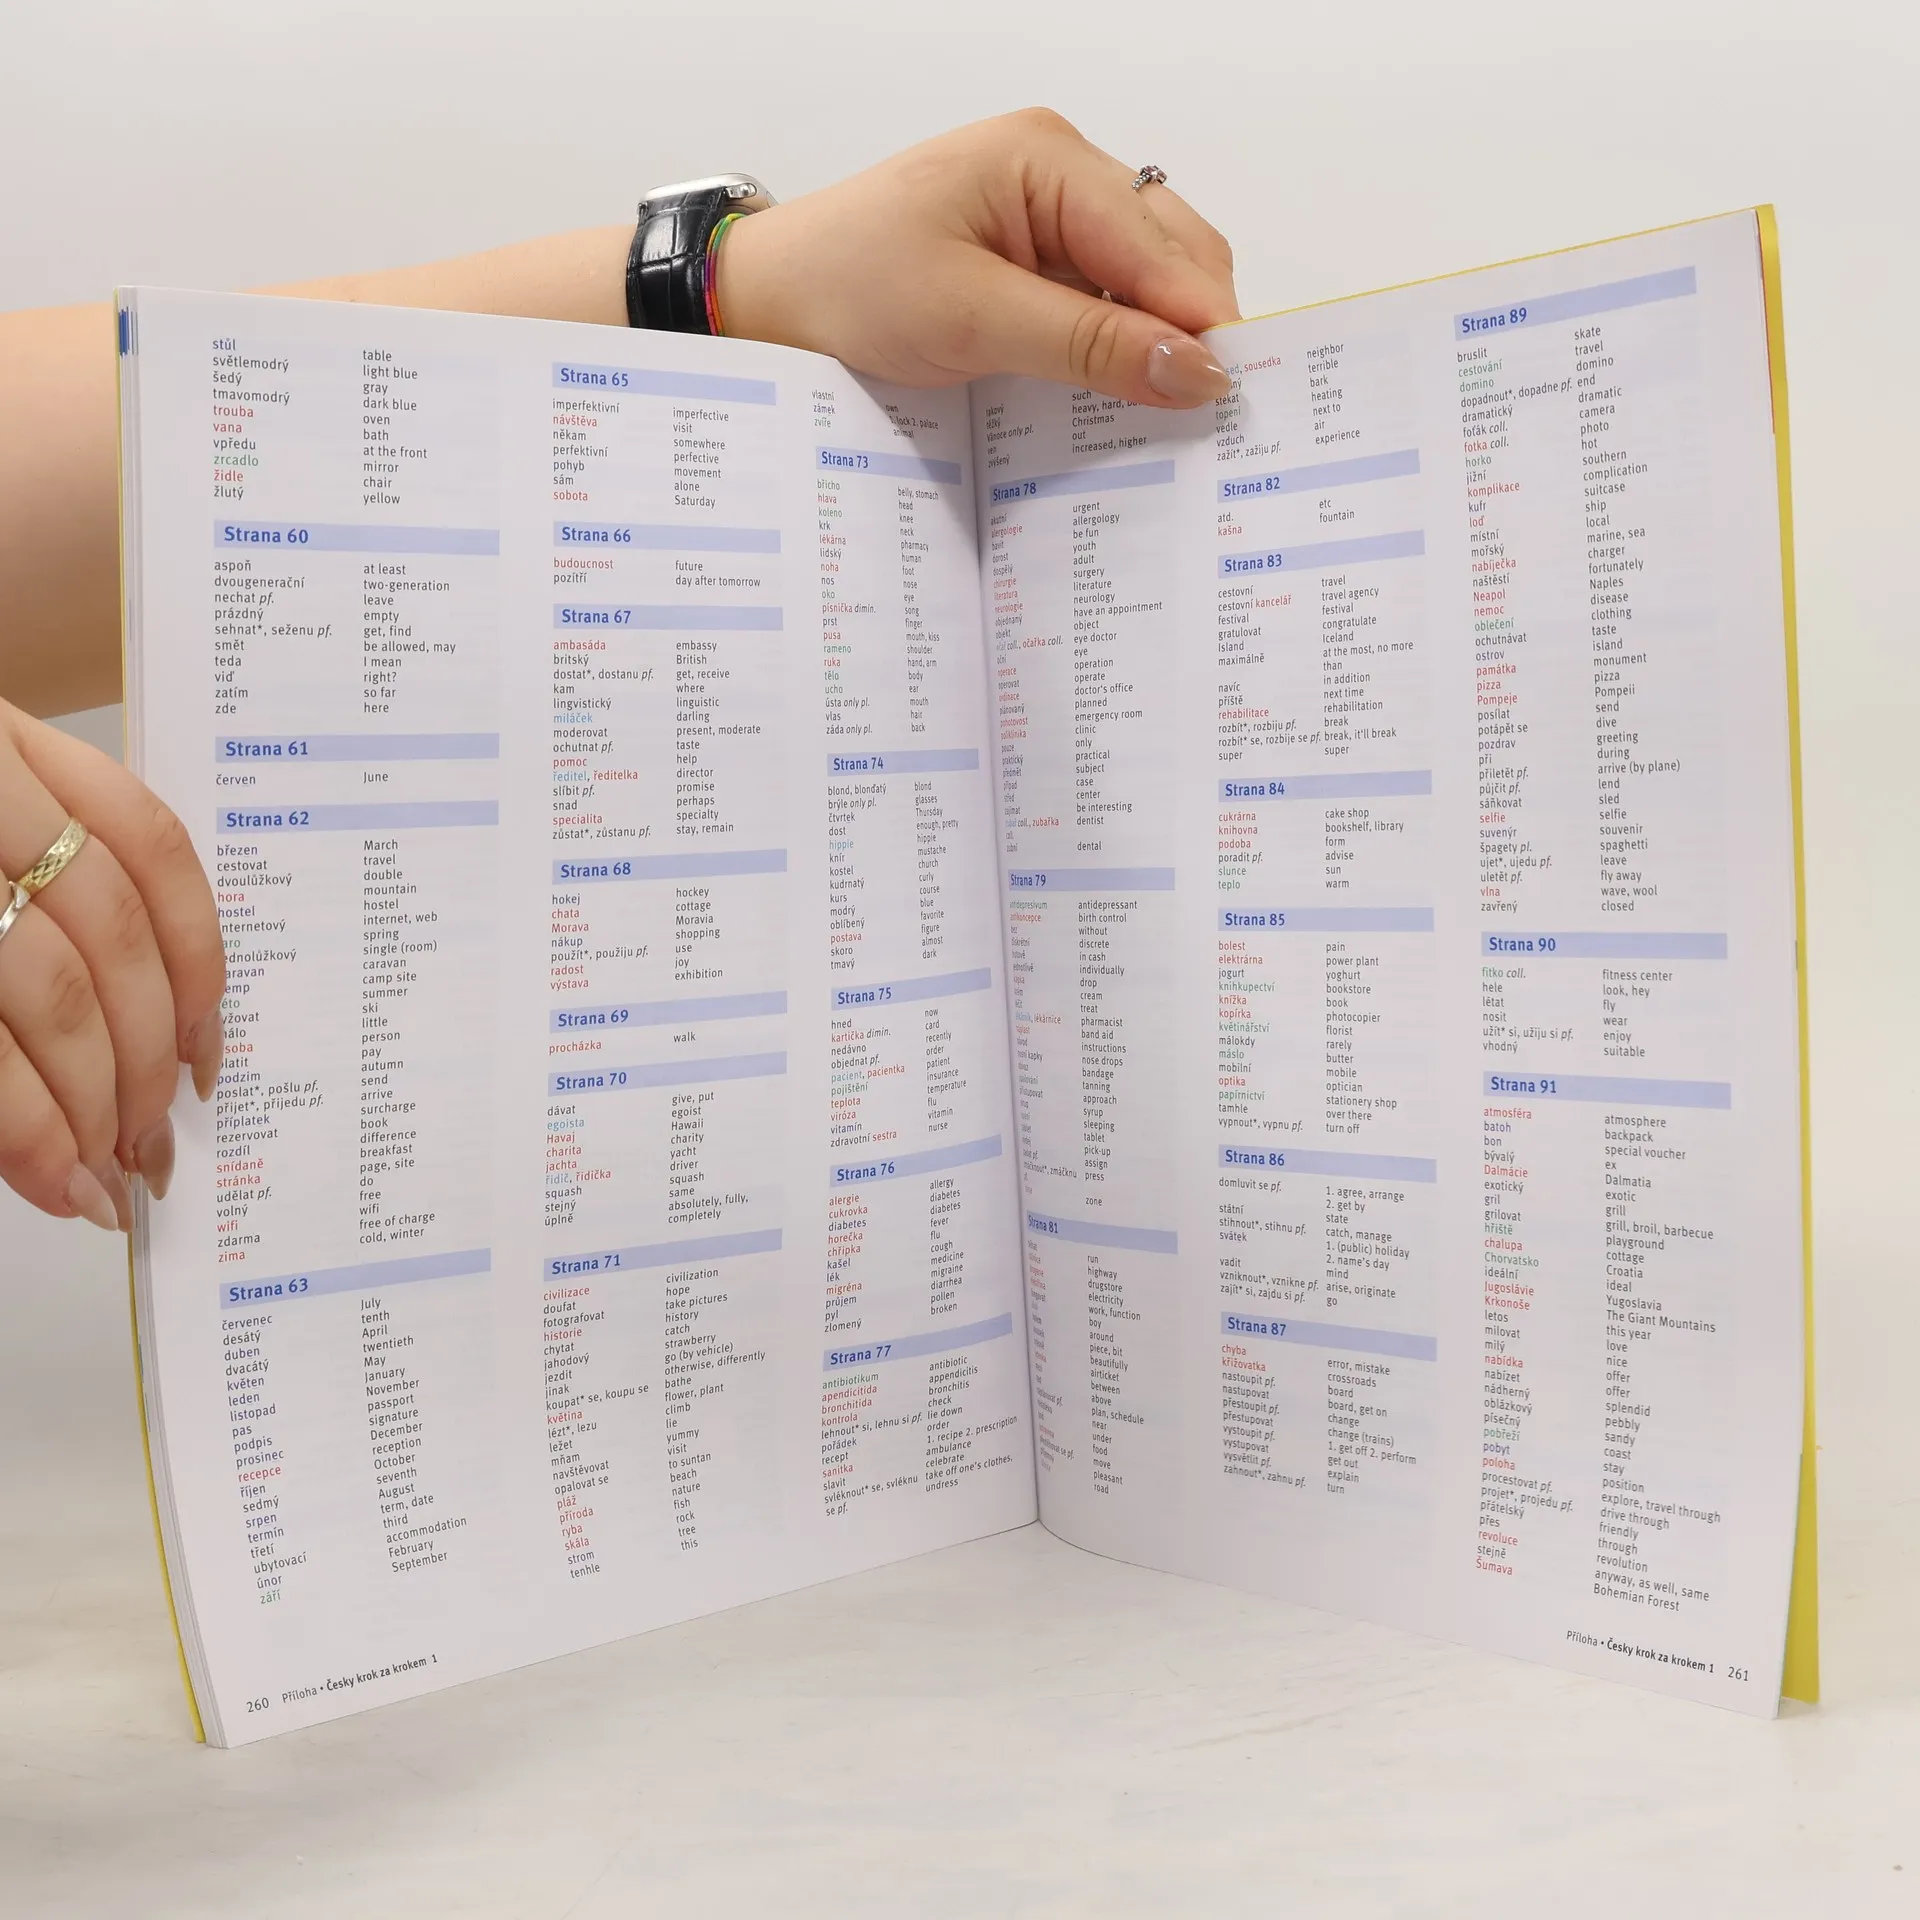 stůl table
světlemodrý light blue
šedý gray
tmavomodrý dark blue
trouba oven
vana bath
vpředu at the front
zrcadlo mirror
židle chair
žlutý yellow
Strana 60
aspoň at least
dvougenerační two-generation
nechat pf. leave
prázdný empty
sehnat*, seženu pf. get, find
smět be allowed, may
teda I mean
viď right?
zatím so far
zde here
Strana 61
červen June
Strana 62
březen March
cestovat travel
dvoulůžkový double
hora mountain
hostel hostel
internetový internet, web
spring
single (room)
caravan
camp site
summer
ski
little
person
pay
podzim autumn
poslat*, pošlu pf. send
přijet*, přijedu pf. arrive
příplatek surcharge
rezervovat book
rozdíl difference
snídaně breakfast
stránka page, site
udělat pf. do
volný free
wifi wifi
zdarma free of charge
zima cold, winter
Strana 63
červenec July
desátý tenth
duben April
dvacátý twentieth
květen May
leden January
listopad November
pas passport
podpis signature
prosinec December
recepce reception
říjen October
sedmý seventh
srpen August
termín term, date
třetí third
ubytovací accommodation
únor February
září September
Strana 65
imperfektivní imperfective
návštěva visit
někam somewhere
perfektivní perfective
pohyb movement
sám alone
sobota Saturday
Strana 66
budoucnost future
pozítří day after tomorrow
Strana 67
ambasáda embassy
britský British
dostat*, dostanu pf. get, receive
kam where
lingvistický linguistic
miláček darling
moderovat present, moderate
ochutnat pf. taste
pomoc help
ředitel, ředitelka director
slíbit pf. promise
snad perhaps
specialita specialty
zůstat*, zůstanu pf. stay, remain
Strana 68
hokej hockey
chata cottage
Morava Moravia
nákup shopping
použít*, použiju pf. use
radost joy
výstava exhibition
Strana 69
procházka walk
Strana 70
dávat give, put
egoista egoist
Havaj Hawaii
charita charity
jachta yacht
řidič, řidička driver
squash squash
stejný same
úplně absolutely, fully,
completely
Strana 71
civilizace civilization
doufat hope
fotografovat take pictures
historie history
chytat catch
jahodový strawberry
jezdit go (by vehicle)
jinak otherwise, differently
koupat* se, koupu se bathe
květina flower, plant
lézt*, lezu climb
ležet lie
mňam yummy
navštěvovat visit
opalovat se to suntan
pláž beach
příroda nature
ryba fish
skála rock
strom tree
tenhle this
vlastní own
zámek 1. lock 2. palace
zvíře animal
Strana 73
břicho belly, stomach
hlava head
koleno knee
krk neck
lékárna pharmacy
lidský human
noha foot
nos nose
oko eye
písnička dimin. song
prst finger
pusa mouth, kiss
rameno shoulder
ruka hand, arm
tělo body
ucho ear
ústa only pl. mouth
vlas hair
záda only pl. back
Strana 74
blond, blonďatý blond
brýle only pl. glasses
čtvrtek Thursday
dost enough, pretty
hippie hippie
knír mustache
kostel church
kudrnatý curly
kurs course
modrý blue
oblíbený favorite
postava figure
skoro almost
tmavý dark
Strana 75
hned now
kartička dimin. card
nedávno recently
objednat pf. order
pacient, pacientka patient
pojištění insurance
teplota temperature
viróza flu
vitamín vitamin
zdravotní sestra nurse
Strana 76
alergie allergy
cukrovka diabetes
diabetes diabetes
horečka fever
chřipka flu
kašel cough
lék medicine
migréna migraine
průjem diarrhea
pyl pollen
zlomený broken
Strana 77
antibiotikum antibiotic
apendicitida appendicitis
bronchitida bronchitis
kontrola check
lehnout* si, lehnu si pf. lie down
pořádek order
recept 1. recipe 2. prescription
sanitka ambulance
slavit celebrate
svléknout* se, svléknu take off one's clothes,
se pf. undress
260 Příloha • Česky krok za krokem 1
takový such
těžký heavy, hard,
Vánoce only pl. Christmas
ven out
zvýšený increased, higher
Strana 78
akutní urgent
alergologie allergology
bavit be fun
dorost youth
dospělý adult
chirurgie surgery
literatura literature
neurologie neurology
objednaný have an appointment
objekt object
coll., očařka coll. eye doctor
oční eye
operace operation
operovat operate
ordinace doctor's office
plánovaný planned
pohotovost emergency room
poliklinika clinic
pouze only
praktický practical
předmět subject
případ case
střed center
zajímat be interesting
coll., zubařka dentist
coll.
zubní dental
Strana 79
antidepresivum antidepressant
antikoncepce birth control
bez without
diskrétní discrete
hotově in cash
jednotlivě individually
drop
krém cream
treat
lékárník, lékárnice pharmacist
band aid
návod instructions
nosní kapky nose drops
bandage
tanning
approach
syrup
sleeping
tablet
pick-up
assign
zmáčknout*, zmáčknu press
zone
Strana 81
run
highway
drugstore
electricity
work, function
boy
around
piece, bit
beautifully
airticket
between
above
plan, schedule
near
under
food
move
pleasant
road
sousedka neighbor
terrible
štěkat bark
topení heating
vedle next to
vzduch air
zažít*, zažiju pf. experience
Strana 82
atd. etc
kašna fountain
Strana 83
cestovní travel
cestovní kancelář travel agency
festival festival
gratulovat congratulate
Island Iceland
maximálně at the most, no more
than
navíc in addition
příště next time
rehabilitace rehabilitation
rozbít*, rozbiju pf. break
rozbít* se, rozbije se pf. break, it'll break
super super
Strana 84
cukrárna cake shop
knihovna bookshelf, library
podoba form
poradit pf. advise
slunce sun
teplo warm
Strana 85
bolest pain
elektrárna power plant
jogurt yoghurt
knihkupectví bookstore
knížka book
kopírka photocopier
květinářství florist
málokdy rarely
máslo butter
mobilní mobile
optika optician
papírnictví stationery shop
tamhle over there
vypnout*, vypnu pf. turn off
Strana 86
domluvit se pf. 1. agree, arrange
2. get by
státní state
stihnout*, stihnu pf. catch, manage
svátek 1. (public) holiday
2. name's day
vadit mind
vzniknout*, vznikne pf. arise, originate
zajít* si, zajdu si pf. go
Strana 87
chyba error, mistake
křižovatka crossroads
nastoupit pf. board
nastupovat board, get on
přestoupit pf. change
přestupovat change (trains)
vystoupit pf. 1. get off 2. perform
vystupovat get out
vysvětlit pf. explain
zahnout*, zahnu pf. turn
Strana 89
bruslit skate
cestování travel
domino domino
dopadnout*, dopadne pf. end
dramatický dramatic
foťák coll. camera
fotka coll. photo
horko hot
jižní southern
komplikace complication
kufr suitcase
loď ship
místní local
mořský marine, sea
nabíječka charger
naštěstí fortunately
Neapol Naples
nemoc disease
oblečení clothing
ochutnávat taste
ostrov island
památka monument
pizza pizza
Pompeje Pompeii
posílat send
potápět se dive
pozdrav greeting
při during
přiletět pf. arrive (by plane)
půjčit pf. lend
sáňkovat sled
selfie selfie
suvenýr souvenir
špagety pl. spaghetti
ujet*, ujedu pf. leave
uletět pf. fly away
vlna wave, wool
zavřený closed
Strana 90
fitko coll. fitness center
hele look, hey
létat fly
nosit wear
užít* si, užiju si pf. enjoy
vhodný suitable
Strana 91
atmosféra atmosphere
batoh backpack
bon special voucher
bývalý ex
Dalmácie Dalmatia
exotický exotic
gril grill
grilovat grill, broil, barbecue
hřiště playground
chalupa cottage
Chorvatsko Croatia
ideální ideal
Jugoslávie Yugoslavia
Krkonoše The Giant Mountains
letos this year
milovat love
milý nice
nabídka offer
nabízet offer
nádherný splendid
oblázkový pebbly
písečný sandy
pobřeží coast
pobyt stay
poloha position
procestovat pf. explore, travel through
projet*, projedu pf. drive through
přátelský friendly
přes through
revoluce revolution
stejně anyway, as well, same
Šumava Bohemian Forest
Příloha • Česky krok za krokem 1 261